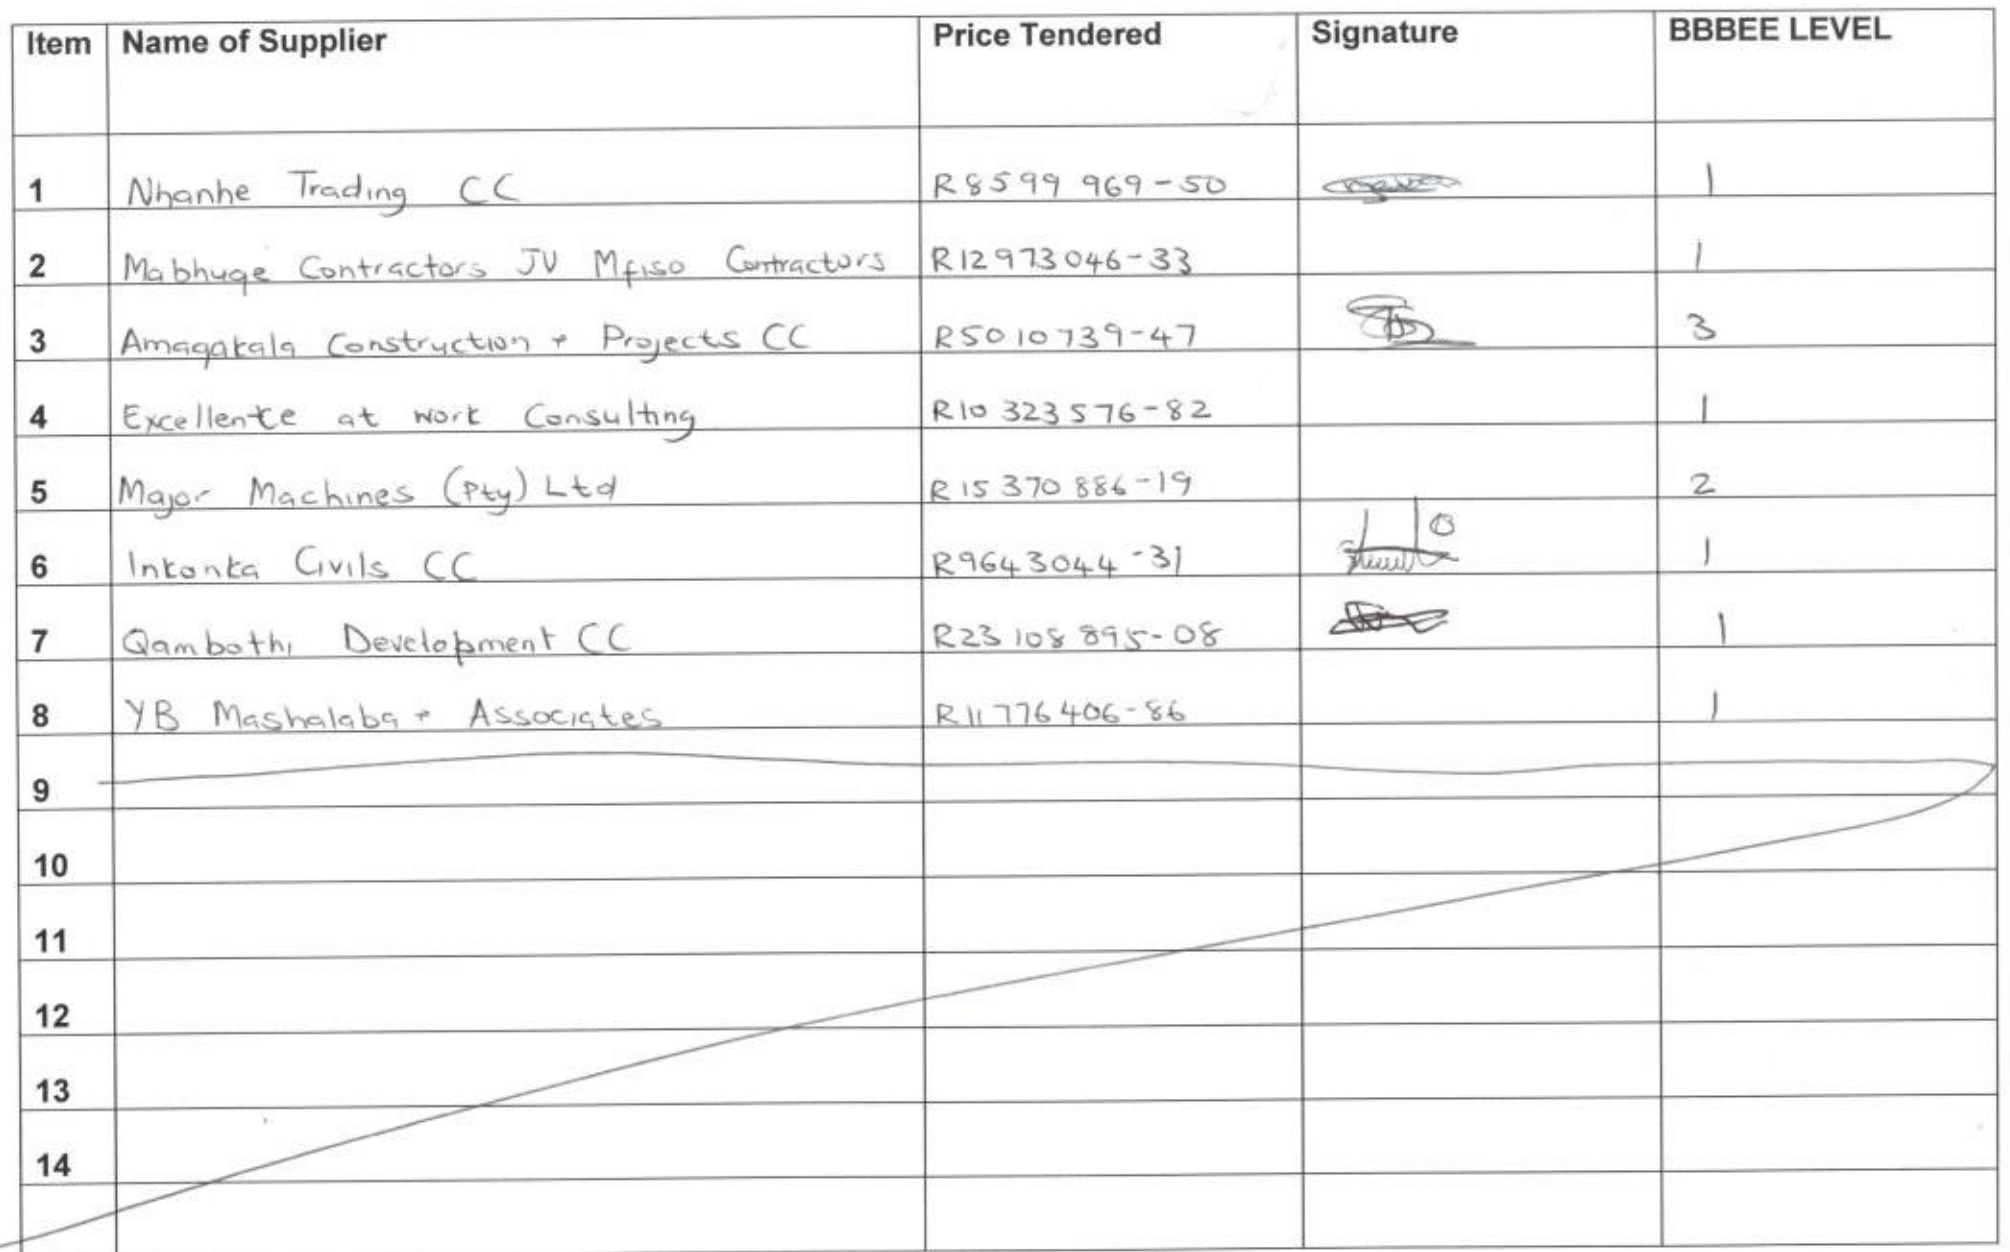 Item Name of Supplier Price Tendered Signature BBBEE LEVEL
1 Nhanhe Trading CC R8599 969-50 1
2 Mabhuqe Contractors JV Mfiso Contractors R12973046-33 1
3 Amaqakala Construction + Projects CC R5010739-47 3
4 Excellente at work Consulting R10 323576-82 1
5 Major Machines (Pty) Ltd R15 370 886-19 2
6 Inkonka Civils CC R9643044-31 1
7 Qambothi Development CC R23 108 895-08 1
8 YB Mashalaba + Associates R11 776 406-86 1
9
10
11
12
13
14